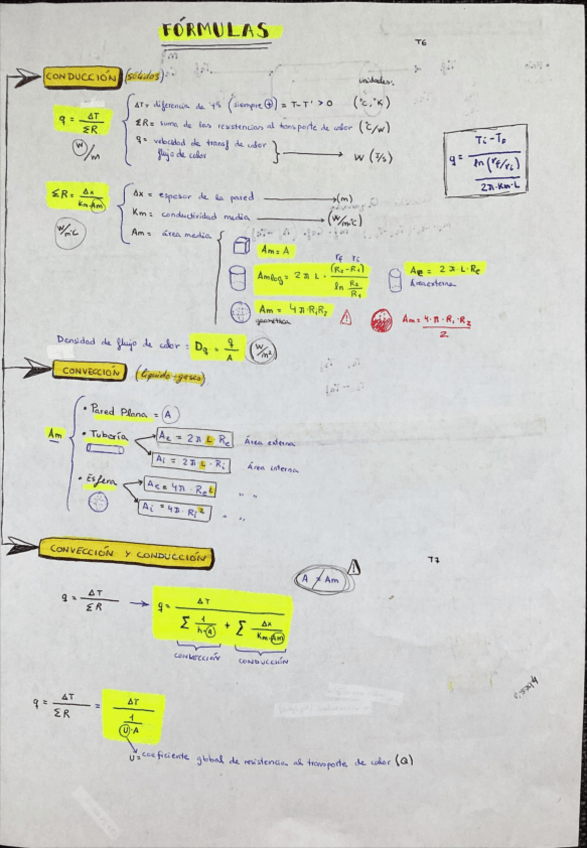 FÓRMULAS
T6
CONDUCCIÓN (sólidos)
unidades:
q = ΔT / ΣR (W)
ΔT = diferencia de Tª (siempre ⊕) = T - T' > 0 (°C, °K)
ΣR = suma de las resistencias al transporte de calor (°C/W)
q = velocidad de transf de calor
flujo de calor → W (J/s)
q = Ti - Tf / ln (rf/ri) / 2π·Km·L
ΣR = Δx / Km·Am
W/m°C
Δx = espesor de la pared → (m)
Km = conductividad media → (W/m°C)
Am = área media
Am = A
rf ri
Amlog = 2π L · (R2 - R1) / ln R2/R1
Ae = 2π·L·Re
Área externa
Am = 4π·R1R2
geométrica
Am = 4·π·R1·R2 / 2
Densidad de flujo de calor = Dq = q / A (W/m²)
CONVECCIÓN (líquido-gases)
Am
• Pared Plana = A
• Tubería
Ae = 2π L · Re Área externa
Ai = 2π L · Ri Área interna
• Esfera
Ae = 4π · Re² " "
Ai = 4π · Ri² " "
CONVECCIÓN Y CONDUCCIÓN
T7
A ≠ Am
q = ΔT / ΣR → q = ΔT / Σ 1/h·A + Σ Δx/Km·Am
CONVECCIÓN CONDUCCIÓN
q = ΔT / ΣR = ΔT / 1/U·A
U = coeficiente global de resistencia al transporte de calor (Q)